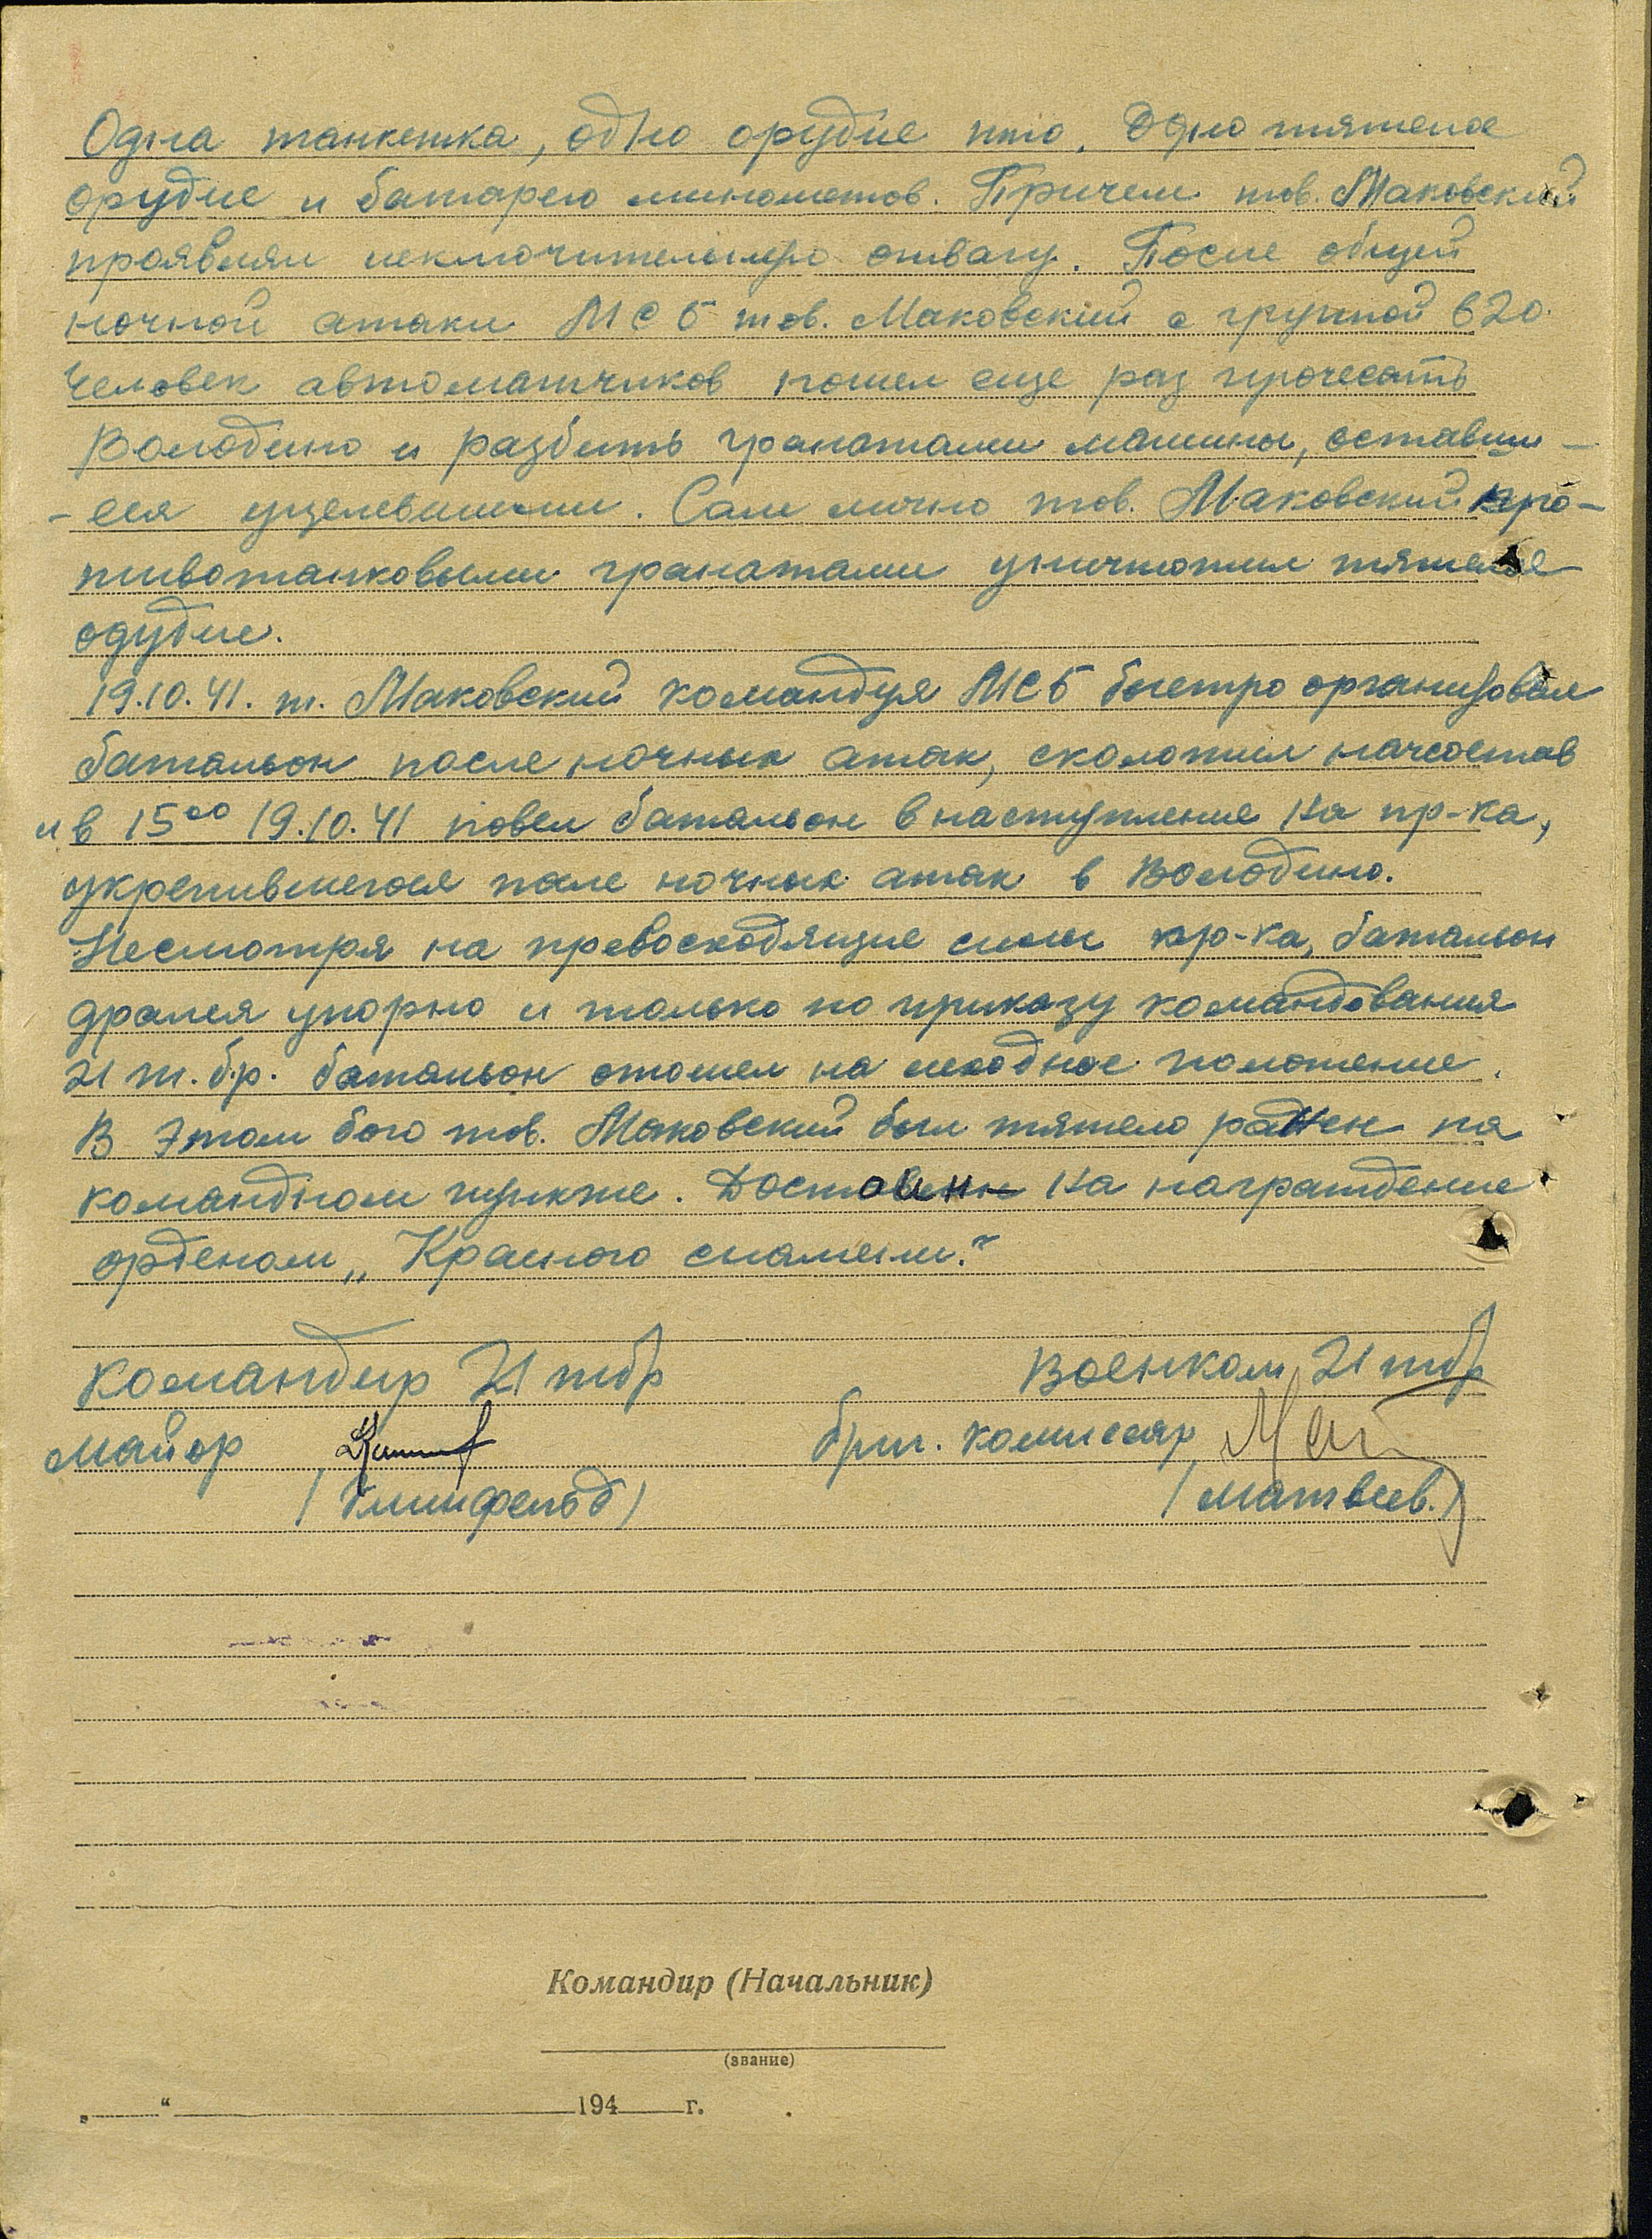 Одна танкетка, одно орудие пто. Одно тяжелое
орудие и батарею минометов. Причем тов. Маковский
проявлял исключительную отвагу. После общей
ночной атаки МСБ тов. Маковский с группой в 20
человек автоматчиков пошел еще раз прочесать
Володино и разбить гранатами машины, оставши-
-еся уцелевшими. Сам лично тов. Маковский про-
тивотанковыми гранатами уничтожил тяжелое
одудие.
19.10.41. т. Маковский командуя МСБ быстро организовал
батальон после ночных атак, сколотил начсостав
и в 15⁰⁰ 19.10.41 повел батальон в наступление на пр-ка,
укрепившегося после ночных атак в Володино.
Несмотря на превосходящие силы пр-ка, батальон
дрался упорно и только по приказу командования
21 т.бр. батальон отошел на исходное положение.
В этом бою тов. Маковский был тяжело ранен на
командном пункте. Достоин на награждение
орденом „Красного знамени."
Командир 21 тбр Военком 21 тбр
Майор бриг. комиссар
(Клинфельд) (Матвеев.)
Командир (Начальник)
(звание)
„ “ 194 г.